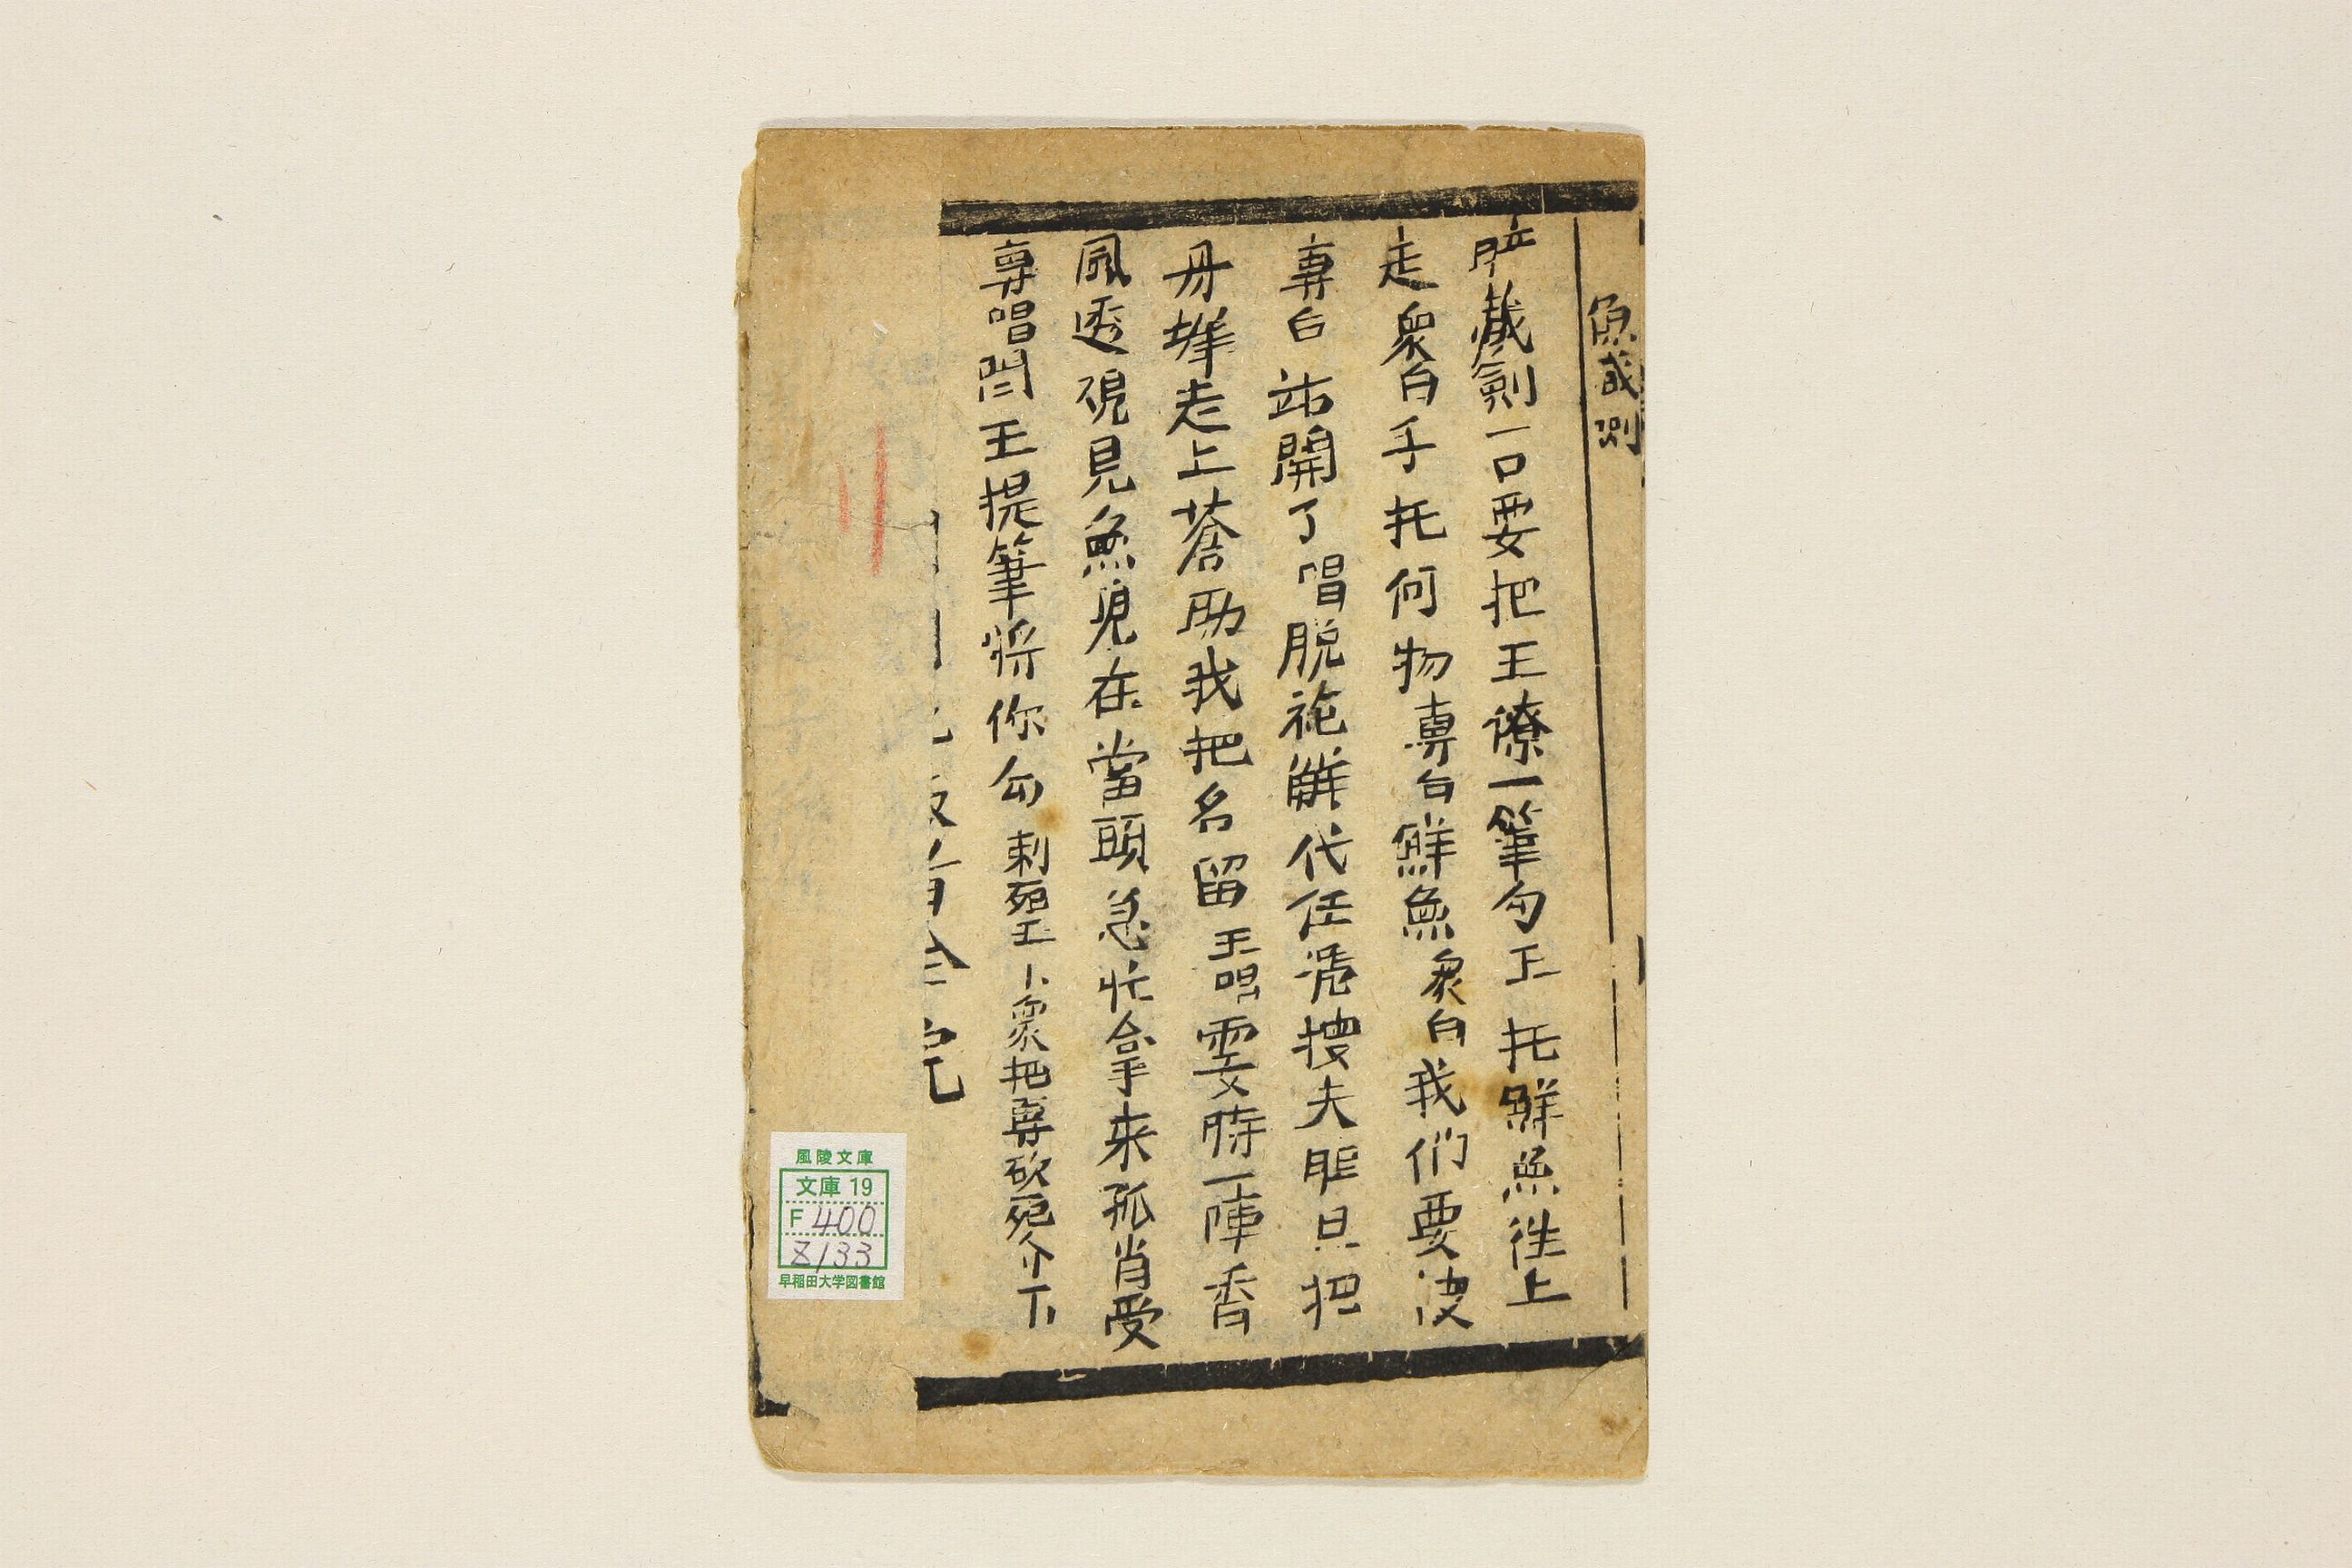 魚
藏劍一口要把王僚一筆勾王托鮮魚往上
走眾白手托何物専白鮮魚眾白我們要
専白站開了唱脱袍觧代任凴搜夫旺旦把
丹墀走上蒼助我把名留王唱霎時一陣香
風透覌見魚兒在當頭急忙拿来孤肖受
専唱閆王提筆將你勾刺死王卜眾把専砍死介下
完
風陵文庫
文庫 19
F 400
Z133
早稲田大学図書館